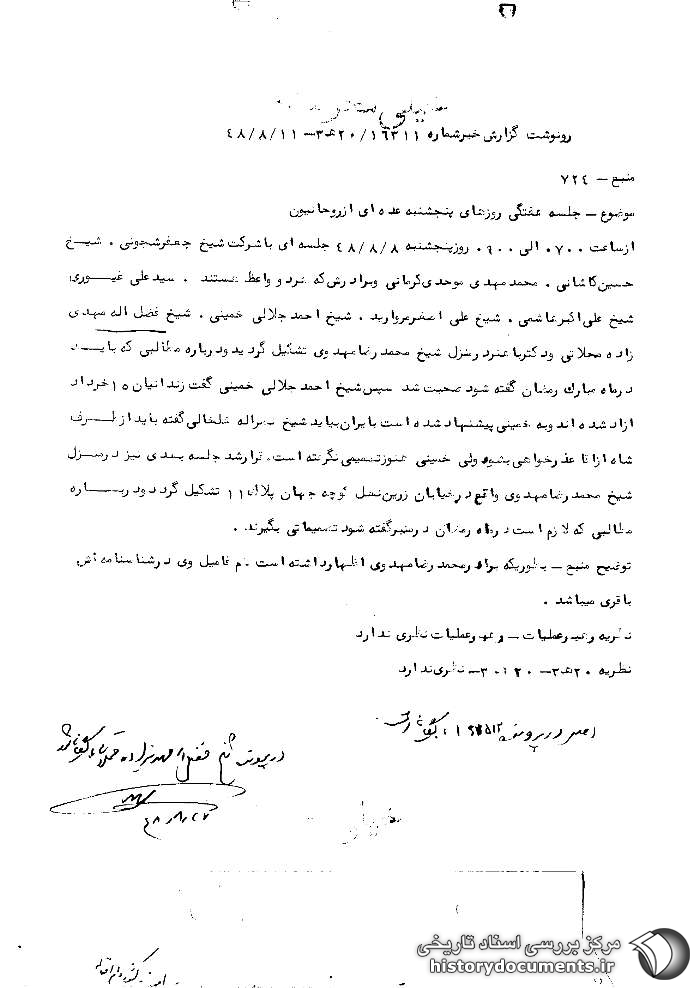 رونوشت گزارش خبرشماره ۱۶۳۱۱/ ۲۰ﻫ۳ – ۴۸/۸/۱۱
منبع – ۷۲۴
موضوع – جلسه هفتگی روزهای پنجشنبه عده ای ازروحانیون
ازساعت ۰۷۰۰ الی ۰۹۰۰ روزپنجشنبه ۴۸/۸/۸ جلسه ای باشرکت شیخ جعفرشجونی . شیخ
حسین کاشانی . محمدمهدی موحدی کرمانی وبرادرش که هردو واعظ هستند . سیدعلی غیوری
شیخ علی اکبرهاشمی . شیخ علی اصغرمروارید . شیخ احمد جلالی خمینی . شیخ فضل اله مهدی
زاده محلاتی ودکترباهنردرمنزل شیخ محمدرضامهدوی تشکیل گردیدودرباره مطالبی که بایـــد
درماه مبارک رمضان گفته شود صحبت شد سپس شیخ احمد جلالی خمینی گفت زندانیان ۱۵ خرداد
ازادشده اندوبه خمینی پیشنهادشده است بایران بیاید شیخ نصراله خلخالی گفته بایدازطرف
شاه ازاقا عذرخواهی بشودولی خمینی هنوزتصمیمی نگرفته است. قرارشد جلسه بعدی نیز درمنزل
شیخ محمدرضامهدوی واقع درخیابان زرین نعل کوچه جهان پلاک ۱۱ تشکیل گرددودربــــاره
مطالبی که لازم است درماه رمضان درمنبرگفته شود تصمیماتی بگیرند .
توضیح منبع – بطوریکه برادرمحمدرضامهدوی اظهارداشته است نام فامیل وی درشناسنامه اش
باقری میباشد .
نظریه رهبروعملیات – رهبروعملیات نظری ندارد
نظریه ۲۰ﻫ۳ – ۳۰۱۲۰ – نظری ندارد
اصل در پرونده
در پرونده شیخ فضل اله مهدیزاده محلاتی بایگانی شود
۴۸/۸/۲۷
مرکز بررسی اسناد تاریخی
historydocuments.ir